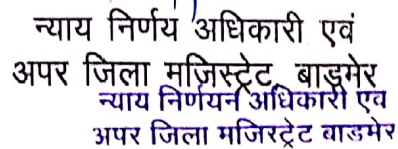 न्याय निर्णय अधिकारी एवं
अपर जिला मजिस्ट्रेट, बाड़मेर
न्याय निर्णयन अधिकारी एव
अपर जिला मजिस्ट्रेट बाडमेर